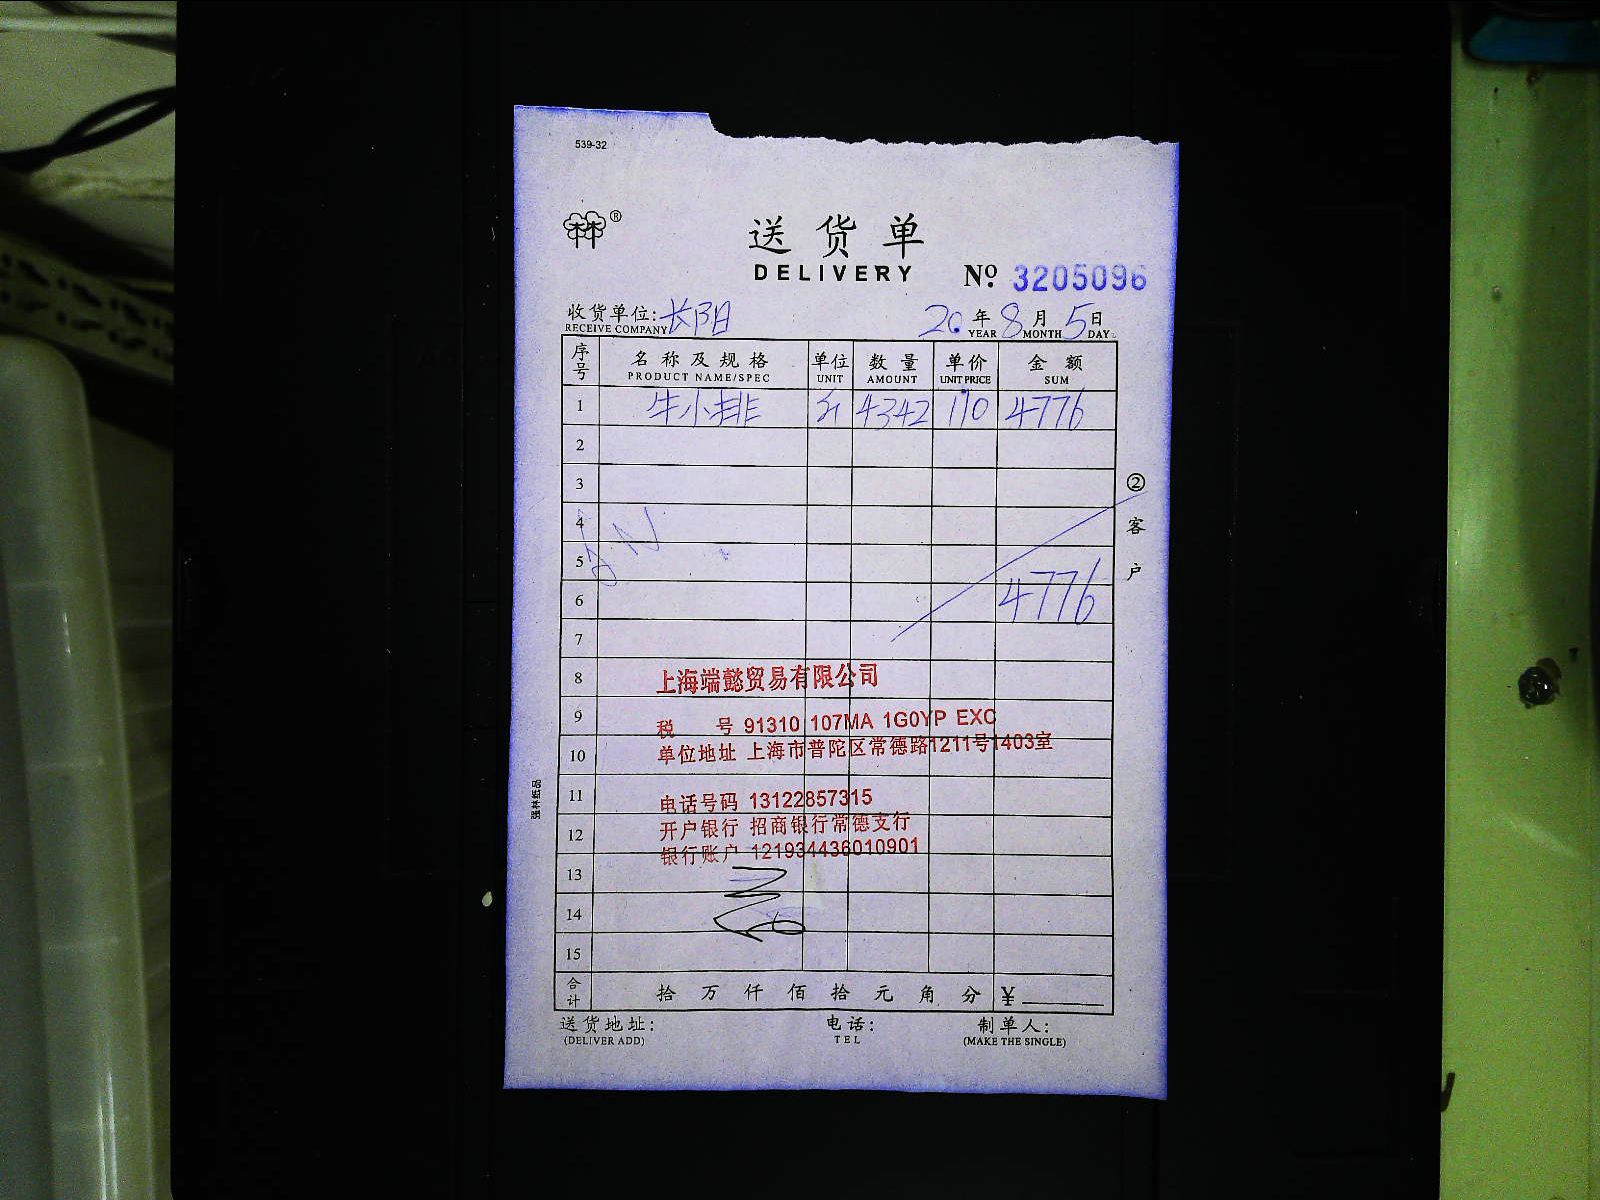 539-32
®
送货单
DELIVERY Nº 3205096
收货单位: 长阳 20. 年 8 月 5 日
RECEIVE COMPANY YEAR MONTH DAY
序号 名称及规格 单位 数量 单价 金额
PRODUCT NAME/SPEC UNIT AMOUNT UNIT PRICE SUM
1 牛小排 斤 4342 110 4776
2
3
4
5
6 4776
7
8 上海端懿贸易有限公司
9 税号 91310 107MA 1G0YP EXC
10 单位地址 上海市普陀区常德路1211号1403室
11 电话号码 13122857315
12 开户银行 招商银行常德支行
银行账户 121934436010901
13
14
15
合计 拾万仟佰拾元角分 ¥
送货地址: 电话: 制单人:
(DELIVER ADD) TEL (MAKE THE SINGLE)
②客户